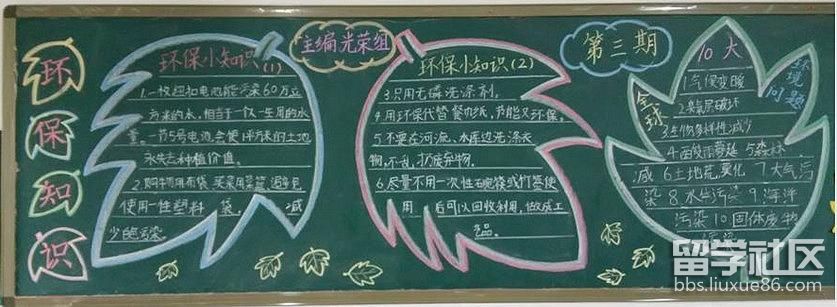 环
保
知
识
主编光荣组
第三期
环保小知识(1)
1.一枚纽扣电池能污染60万立
方米的水,相当于一个人一生用的水
量。一节5号电池会使1平方米的土地
永失去种植价值。
2.购物用布袋 买菜用菜篮,避免
使用一性塑料袋。减
少白色污染。
环保小知识(2)
3.只用无磷洗涤剂。
4.用环保代替餐巾纸,节能又环保。
5.不要在河流、水库边洗涤衣
物,不乱扔废弃物。
6.尽量不用一次性石碗筷或打签使
用 后可以回收利用,做成工
艺品。
全球
10大
环境
问题
1气候变暖
2臭氧层破坏
3生物多样性减少
4酸雨蔓延 5森林
减 6土地荒漠化 7大气污
染 8水体污染 9海洋
污染 10固体废物
污染
留学社区
bbs.liuxue86.com